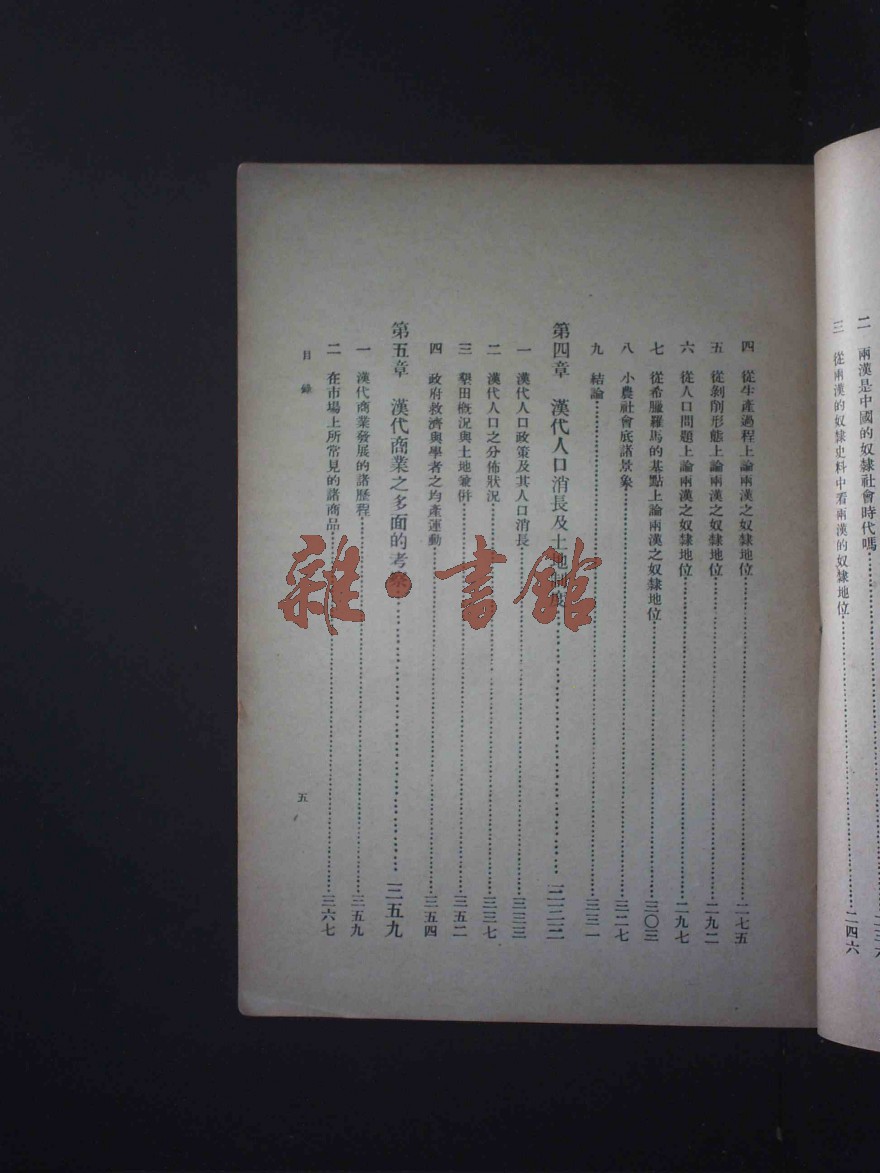 二　兩漢是中國的奴隸社會時代嗎
三　從兩漢的奴隸史料中看兩漢的奴隸地位……二四六
四　從生產過程上論兩漢之奴隸地位……二七五
五　從剝削形態上論兩漢之奴隸地位……二九二
六　從人口問題上論兩漢之奴隸地位……二九七
七　從希臘羅馬的基點上論兩漢之奴隸地位……三〇三
八　小農社會底諸景象……三二七
九　結論……三三一
第四章　漢代人口消長及土地制度……三三三
一　漢代人口政策及其人口消長……三三三
二　漢代人口之分佈狀況……三三七
三　墾田概況與土地兼併……三五二
四　政府救濟與學者之均產運動……三五四
第五章　漢代商業之多面的考察……三五九
一　漢代商業發展的諸歷程……三五九
二　在市場上所常見的諸商品……三六七
目錄
五
雜·書館